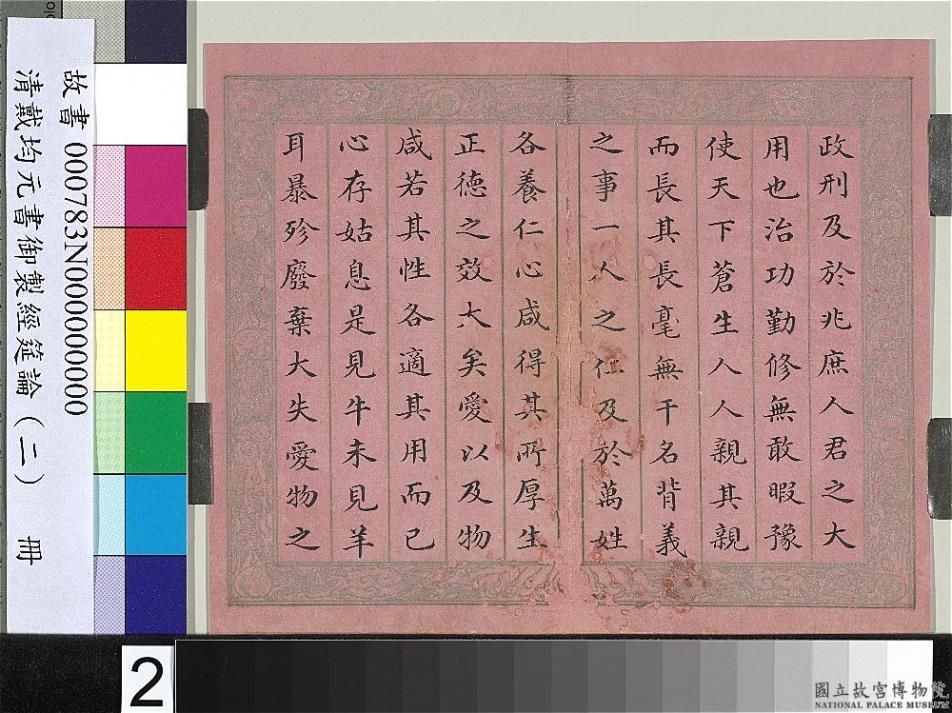 政刑及於兆庶人君之大
用也治功勤修無敢暇豫
使天下蒼生人人親其親
而長其長毫無干名背義
之事一人之仁及於萬姓
各養仁心咸得其所厚生
正德之效大矣愛以及物
咸若其性各適其用而已
心存姑息是見牛未見羊
耳暴殄廢棄大失愛物之
故書 000783N000000000
清戴均元書御製經筵論(二) 冊
2
國立故宮博物院
NATIONAL PALACE MUSEUM